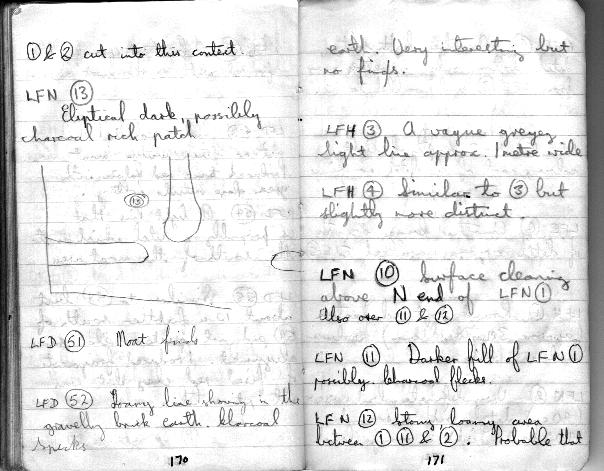 ① & ② cut into this context.
LFN ⑬
Eliptical dark, possibly
charcoal rich patch
⑬
LFD 51 Moat finds
LFD 52 Loamy line showing in the
gravelly brick earth. Charcoal
specks
170
earth. Very interesting but
no finds.
LFH ③ A vague greyey
light line approx. 1 metre wide
LFH ④ Similar to ③ but
slightly more distinct.
LFN ⑩ Surface cleaning
above N end of LFN ①
Also over ⑪ & ⑫
LFN ⑪ Darker fill of LFN ①
possibly. Charcoal flecks.
LFN ⑫ Stony, loamy area
between ① ⑪ & ②. Probable that
171